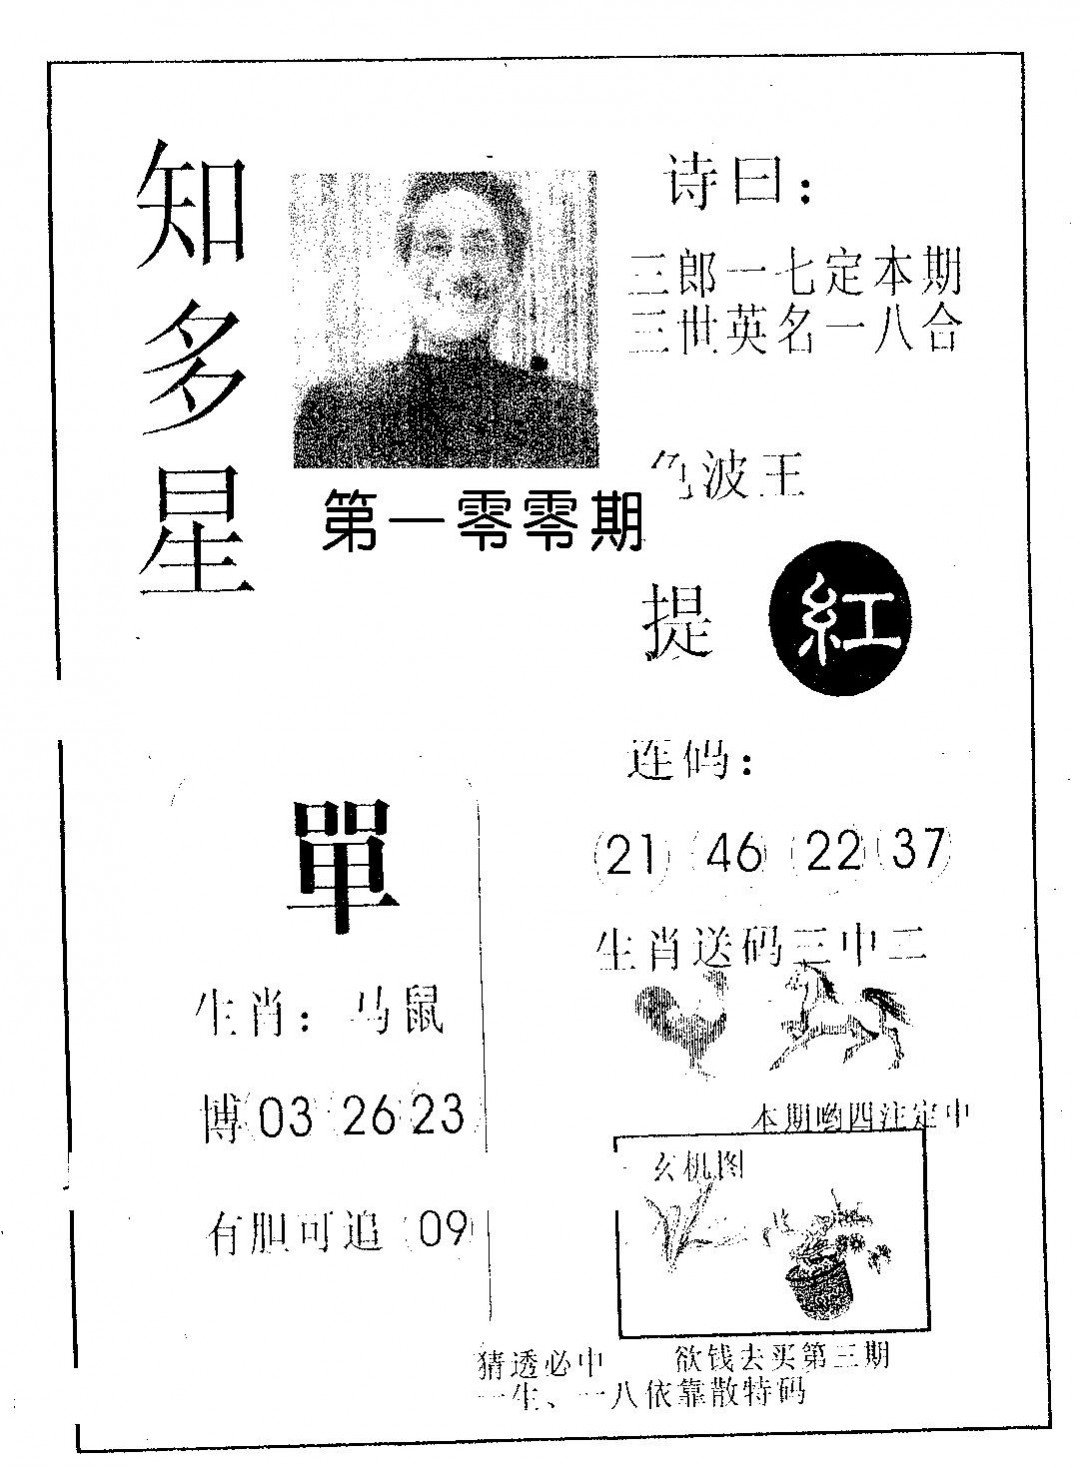 知多星
诗曰：
三郎一七定本期
三世英名一八合
第一零零期
色波王
提 紅
單
生肖：马鼠
博 03 26 23
有胆可追 09
连码：
21 46 22 37
生肖送码三中二
本期哟四注定中
玄机图
猜透必中 欲钱去买第三期
一生、一八依靠散特码